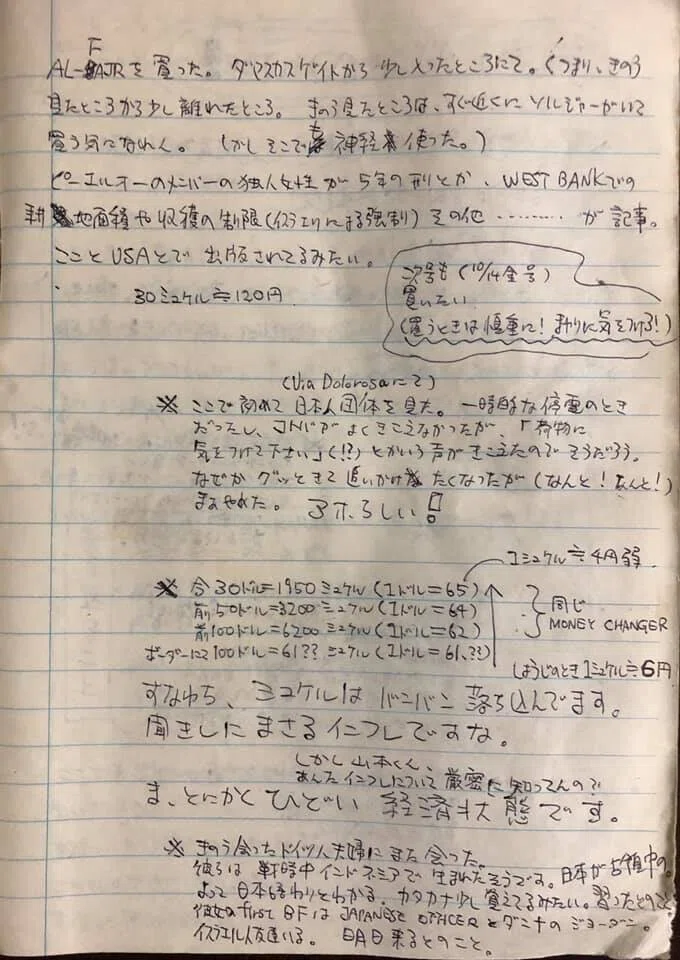 AL-FAJRを買った。ダマスカスゲイトから少し入ったところにて。くつまり、きのう
見たところから少し離れたところ。きのう見たところは、すぐ近くにソルジャーがいて
買う気になれん。(しかしそこでも神経使った。)
ピーエルオーのメンバーの独人女性が5年の刑とか、WEST BANKでの
耕地面積や収穫の制限(イスラエルによる強制)その他………が記事。
こことUSAとで出版されてるみたい。
30シュケル≒120円
次号も(10/14金号)
買いたい
(買うときは慎重に!まわりに気をつけろ!)
(Via Dolorosaにて)
※ここで初めて日本人団体を見た。一時的な停電のとき
だったし、よくきこえなかったが、「荷物に
気をつけて下さい」(!?)とかいう声がきこえたのでそうだろう。
なぜかグッときて追いかけたくなったが(なんと!なんと!)
まぁやめた。アホらしい!
1シュケル≒4円弱
※今30ドル=1950シュケル(1ドル=65)
前50ドル=3200シュケル(1ドル=64)
前100ドル=6200シュケル(1ドル=62)
ボーダーにて100ドル=61??シュケル(1ドル=61.??)
同じ
MONEY CHANGER
しょうじのとき1シュケル≒6円
すなわち、シュケルはバンバン落ち込んでます。
聞きしにまさるインフレですな。
しかし山本くん、
あんたインフレについて厳密に知ってんの?
ま、とにかくひどい経済状態です。
※きのう会ったドイツ人夫婦にまた会った。
彼らは戦時中インドネシアで生まれたそうです。日本が占領中の。
よって日本語わりとわかる。カタカナ少し覚えてるみたい。習ったとのこと
彼女のfirst BFはJAPANESE OFFICERとダンナのジョーダン。
イスラエル人友達いる。明日来るとのこと。